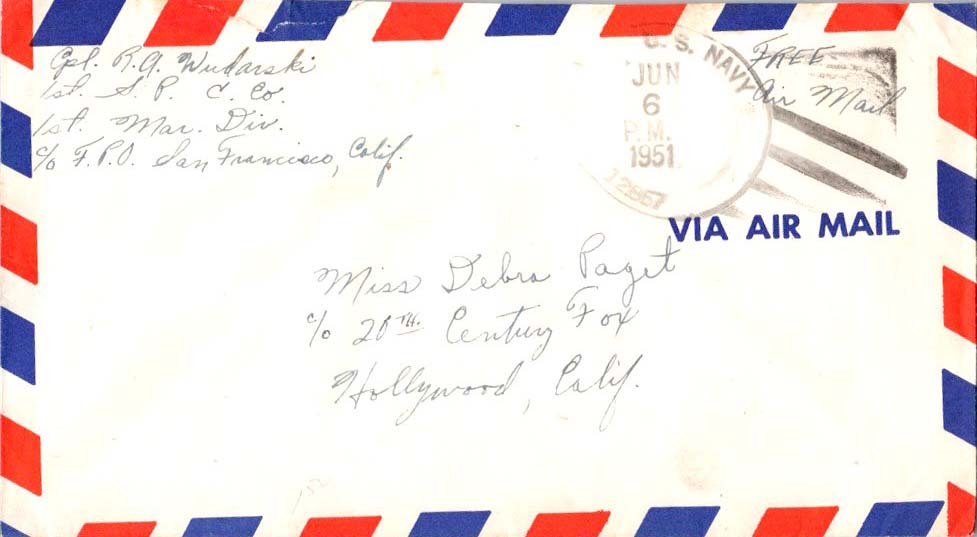 Cpl. R.A. Wudarski
1st. S. P. C. Co.
1st. Mar. Div.
c/o F.P.O. San Francisco, Calif.
FREE
Air Mail
U. S. NAVY
JUN
6
P.M.
1951
12867
VIA AIR MAIL
Miss Debra Paget
c/o 20TH. Century Fox
Hollywood, Calif.